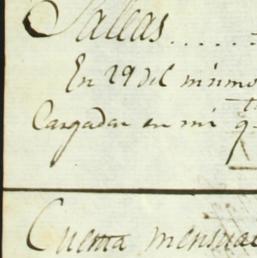 Salleas......
En 29 del mismo
Cargadas en mi q.
Cuenta mensual